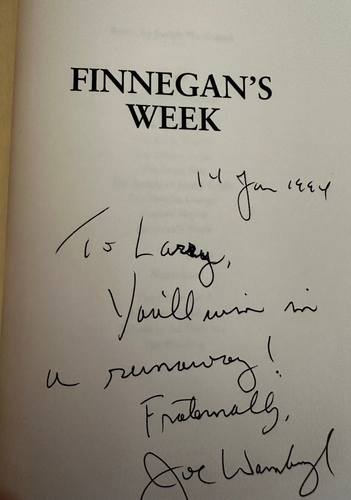 FINNEGAN'S
WEEK
14 Jan 1994
To Larry,
You'll win in
a runaway!
Fraternally,
Joe Wambaugh